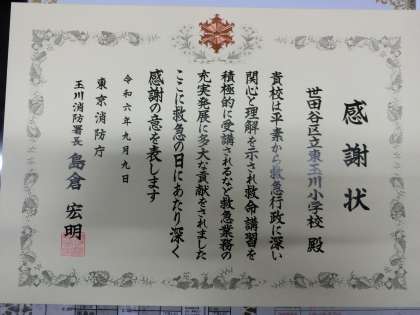 感謝状
世田谷区立東玉川小学校 殿
貴校は平素から救急行政に深い
関心と理解を示され救命講習を
積極的に受講されるなど救急業務の
充実発展に多大な貢献をされました
ここに救急の日にあたり深く
感謝の意を表します
令和六年九月九日
東京消防庁
玉川消防署長 島倉宏明